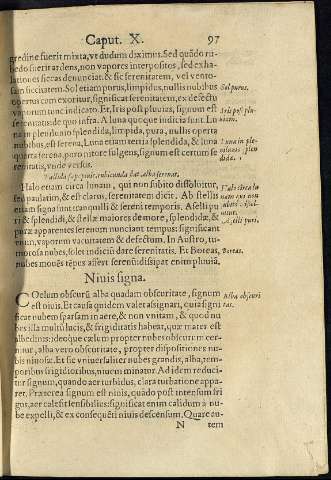 Caput. X. 97
gredine fuerit mixta, vt dudum diximus. Sed quādo ru-
bedo fuerit ardens, non vapores interpositos, sed exha-
lationes siccas denunciat, & sic serenitatem, vel vento-
sam siccitatem. Sol etiam purus, limpidus, nullis nubibus
opertus cum exoritur, significat serenitatem, ex defectu
vaporum tunc indicato. Et Iris post pluvias, signum est
serenitatis: de quo infra. A luna quoque indicia sunt. Lu
na in plenilunio splendida, limpida, pura, nullis operta
nubibus, est serena, Luna etiam tertia splendida, & luna
quarta serena, puro nitore fulgens, signum est certum se
renitatis, vnde versus.
Pallida luna pluit, rubicunda flat, alba serenat.
Halo etiam circa lunam, qui non subito dissolvitur,
sed paulatim, & est clarus, serenitatem dicit. Ab stellis
etiam signa sunt tranquilli & sereni temporis. Aselli pu
ri & splendidi, & stellæ maiores de more, splendidæ, &
puræ apparentes serenum nunciant tempus: significant
enim, vaporem vacuitatem & defectum. In Austro, tu-
morosa nubes, solet indiciū dare serenitatis. Et Boreas,
nubes movēs repus affert serenū: dissipat enim pluviā,
Nivis signa.
COelum obscurū alba quadam obscuritate, signum
est nivis. Et causa quidem valet assignari, cur a signi
ficat nubem sparsam in aere, & non vnitam, & quod nu
bes illa multū lucis, & frigiditatis habeat, quæ mater est
albedinis: ideoque cælum propter nubes obscurum cer-
nitur, alba vero obscuritate, propter dispositiones nu-
bis nivosæ. Et sic vniversaliter nubes grandis, alba, tem-
poribus frigidioribus, nivem minatur. Ad idem reduci-
tur signum, quando aer turbidus, clara turbatione appa
ret. Præterea signum est nivis, quādo post intensum fri
gus, aer calesit sensibilius: significat enim calidum à nu-
be expelli, & ex consequēti nivis descensum. Quare au-
N tem
Sol purus.
Iris post plu-
viam.
Luna in ple-
nilunio splen
dida.
Halo circa lu
nam
Aselli puri.
Boreas.
Alba obscuri
tas.